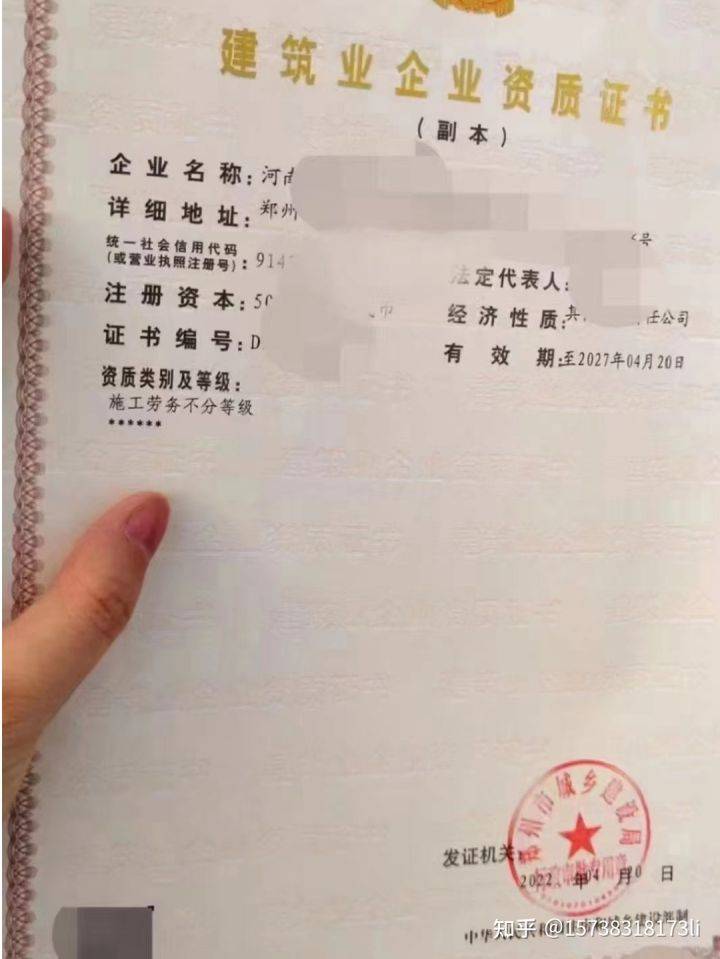 建筑业企业资质证书
(副本)
企业名称:河南
详细地址:郑州
号
统一社会信用代码
(或营业执照注册号):914
法定代表人:
注册资本:50
经济性质:其 任公司
证书编号:D
有效期:至2027年04月20日
资质类别及等级:
施工劳务不分等级
******
郑州市城乡建设局
发证机关:
2022 年 04 月 20 日
中华人民共和国 城乡建设部制
知乎 @15738318173li